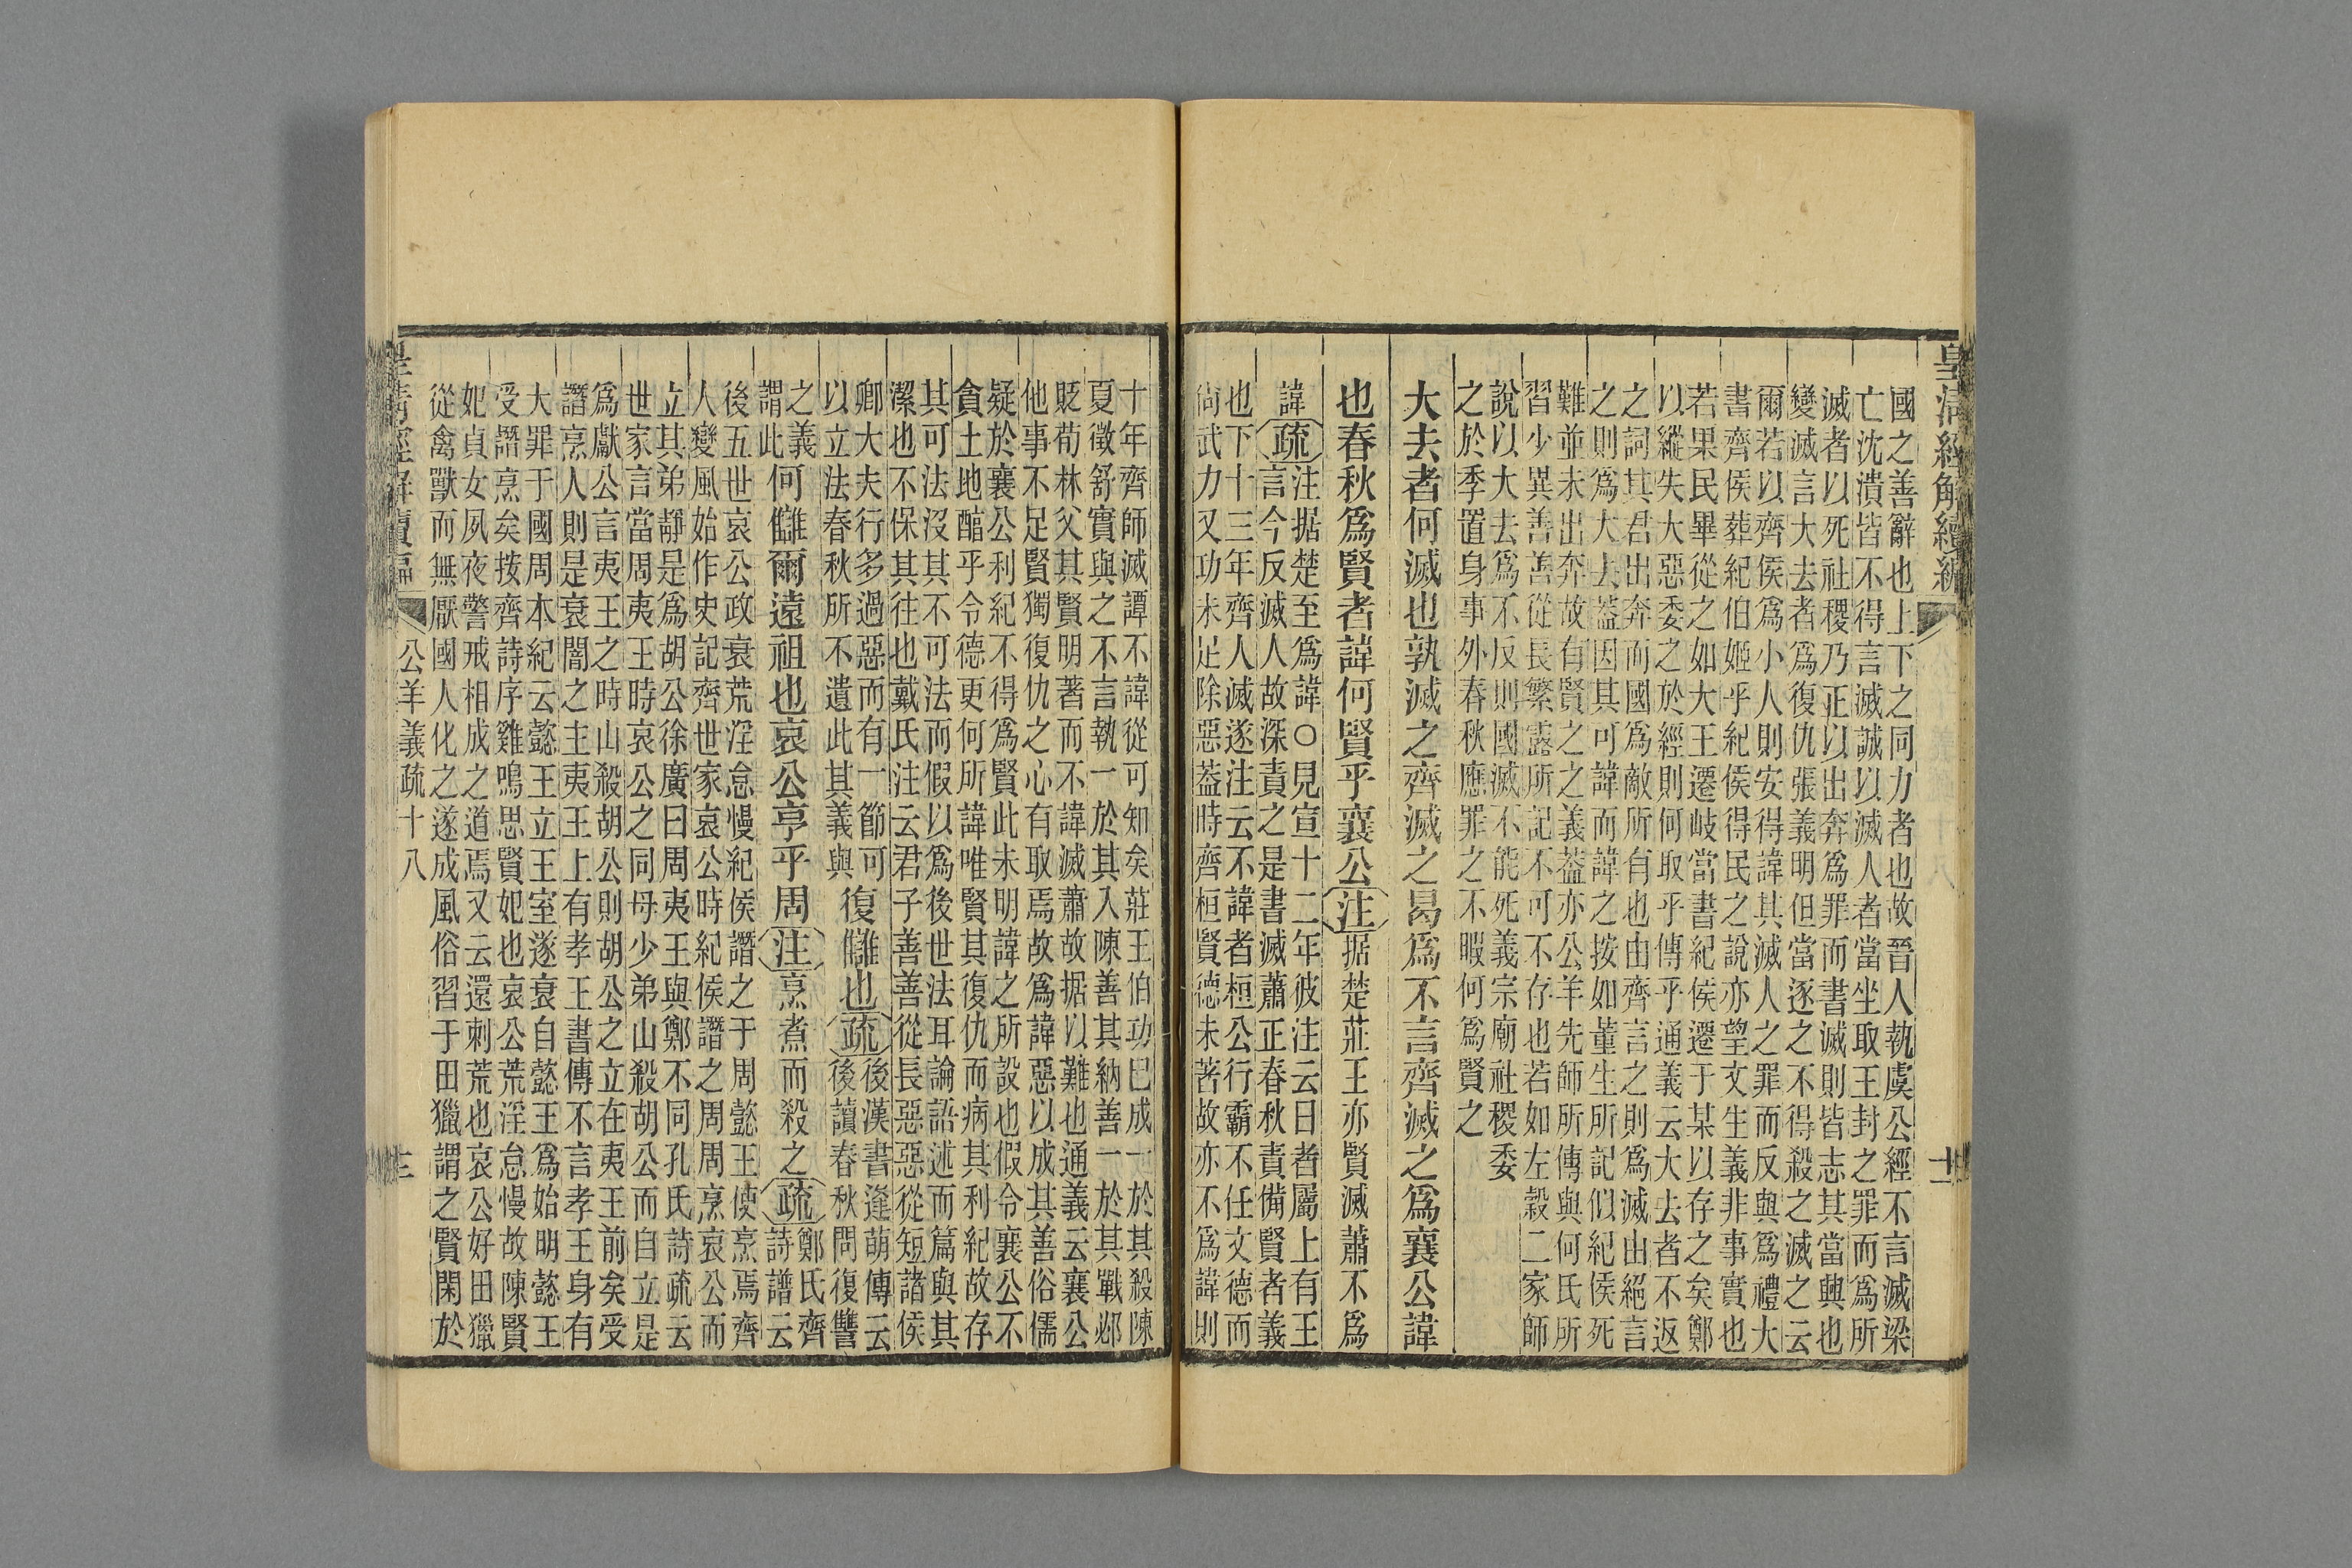 皇清經解續編
國之善辭也上下之同力者也故晉人執虞公經不言滅梁
亡沈潰皆不得言滅誠以滅人者當坐取王封之罪而爲所
滅者以死社稷乃正以出奔爲罪而書滅則皆志其當興也
變滅言大去者爲復仇張義明但當逐之不得殺之滅之云
爾若以齊侯爲小人則安得諱其滅人之罪而反與爲禮大
書齊侯葬紀伯姬乎紀侯得民之說亦望文生義非事實也
若果民畢從之如大王遷岐當書紀侯遷于某以存之矣鄭
以縱失大惡委之於經則何取乎傳乎通義云大去者不返
之詞其君出奔而國爲敵所有也由齊言之則爲滅由絕言
之則爲大去蓋因其可諱而諱之按如董生所記似紀侯死
難並未出奔故有賢之之義蓋亦公羊先師所傳與何氏所
習少異善善從長繁露所記不可不存也若如左穀二家師
說以大去爲不反則國滅不能死義宗廟社稷委
之於季置身事外春秋應罪之不暇何爲賢之
大去者何滅也孰滅之齊滅之曷爲不言齊滅之爲襄公諱
也春秋爲賢者諱何賢乎襄公注据楚莊王亦賢滅蕭不爲
諱疏注据楚至爲諱○見宣十二年彼注云日者屬上有王
言今反滅人故深責之是書滅蕭正春秋責備賢者義
也下十三年齊人滅遂注云不諱者桓公行霸不任文德而
尙武力又功未足除惡蓋時齊桓賢德未著故亦不爲諱則
十年齊師滅譚不諱從可知矣莊王伯功已成一於其殺陳
夏徵舒實與之不言執一於其入陳善其納善一於其戰邲
貶荀林父其賢明著而不諱滅蕭故据以難也通義云襄公
他事不足賢獨復仇之心有取焉故爲諱惡以成其善俗儒
疑於襄公利紀不得爲賢此未明諱之所設也假令襄公不
貪土地醢乎令德更何所諱唯賢其復仇而病其利紀故存
其可法沒其不可法而假以爲後世法耳論語述而篇與其
潔也不保其往也戴氏注云君子善善從長惡惡從短諸侯
卿大夫行多過惡而有一節可
以立法春秋所不遺此其義與
復讎也疏後漢書逢萌傳云
後讀春秋問復讐
之義
謂此
何讎爾遠祖也哀公亨乎周注烹煮而殺之疏鄭氏齊
詩譜云
後五世哀公政衰荒淫怠慢紀侯譖之于周懿王使烹焉齊
人變風始作史記齊世家哀公時紀侯譖之周周烹哀公而
立其弟靜是爲胡公徐廣曰周夷王與鄭不同孔氏詩疏云
世家言當周夷王時哀公之同母少弟山殺胡公而自立是
爲獻公言夷王之時山殺胡公則胡公之立在夷王前矣受
譖烹人則是衰闇之主夷王上有孝王書傳不言孝王身有
大罪于國周本紀云懿王立王室遂衰自懿王爲始明懿王
受譖烹矣按齊詩序雞鳴思賢妃也哀公荒淫怠慢故陳賢
妃貞女夙夜警戒相成之道焉又云還刺荒也哀公好田獵
從禽獸而無厭國人化之遂成風俗習于田獵謂之賢閑於
皇清經解續編 公羊義疏十八